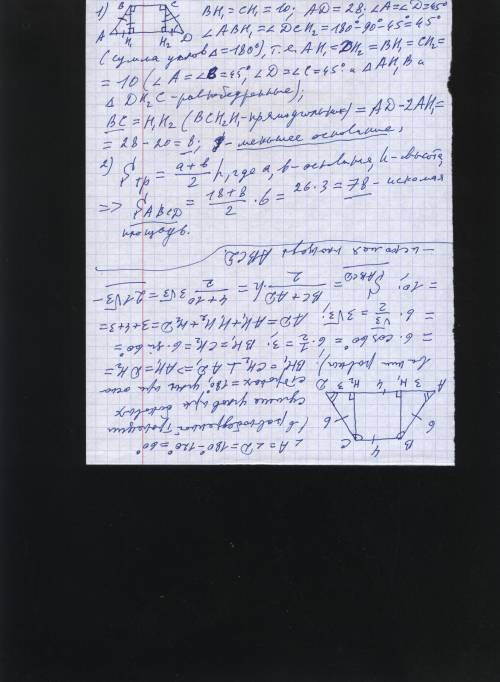 1) BH₁ = CH₁ = 10; AD = 28; ∠A = ∠D = 45°
∠ABH₁ = ∠DCH₂ = 180° - 90° - 45° = 45°
(сумма углов Δ = 180°), т.е. AH₁ = DH₂ = BH₁ = CH₂ =
= 10 (∠A = ∠B = 45°, ∠D = ∠C = 45° и ΔAH₁B и
ΔDH₂C - равнобедренные);
BC = H₁H₂ (BCH₂H₁ - прямоугольник) = AD - 2AH₁ =
= 28 - 20 = 8; - меньшее основание;
2) Sтр = a+b/2 · h, где a, b - основания, h - высота
=> S ABCD = 18+8/2 · 6 = 26 · 3 = 78 - искомая
площадь.
∠A = ∠D = 180° - 120° = 60°
(в равнобедренной трапеции
сумма углов при боковых
сторонах = 180°, углы при осно-
вании равны) BH₁ = CH₂ ⊥ AD => AH₁ = DH₂ =
= 6 · cos 60° = 6 · 1/2 = 3; BH₁ = CH₂ = 6 · sin 60° =
= 6 · √3/2 = 3√3; AD = AH₁ + H₁H₂ + H₂D = 3+4+3 =
= 10; S ABCD = BC + AD/2 · h = 4+10/2 · 3√3 = 21√3 -
- искомая площадь ABCD.
A B C D H₁ H₂
A B C D H₁ H₂ 6 6 4 4 3 3